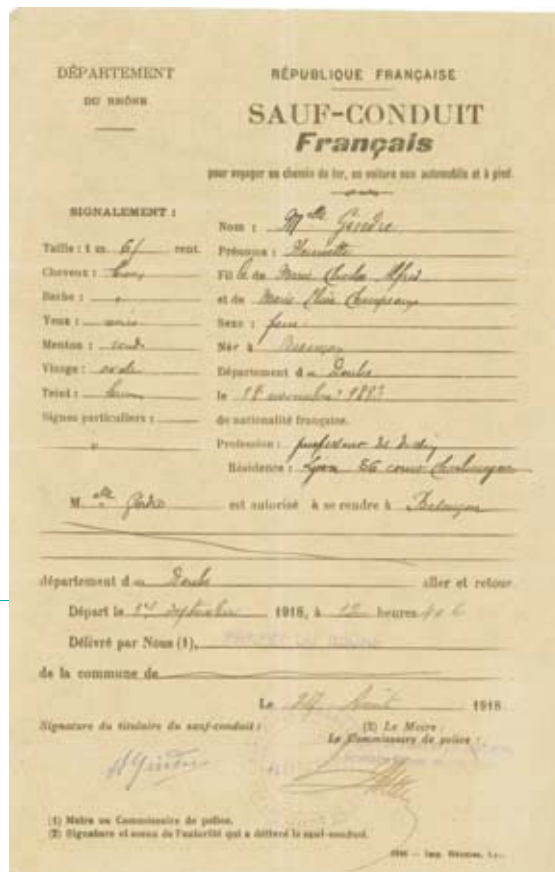 DÉPARTEMENT
DU RHÔNE
RÉPUBLIQUE FRANÇAISE
SAUF-CONDUIT
Français
pour voyager en chemin de fer, en voiture ou automobile et à pied.
SIGNALEMENT :
Taille : 1 m. cent.
Cheveux :
Barbe :
Yeux :
Menton : rond
Visage : ovale
Teint :
Signes particuliers :
Nom : Melle Gindre
Prénoms : Henriette
Fille de Marie Charles Alfred
et de Marie
Sexe : fém
Née à Besançon
Département du Doubs
le 18 novembre 1883
de nationalité française.
Profession : professeur de
Résidence : Lyon 56 cours
Melle Gindre est autorisé à se rendre à Besançon
département du Doubs aller et retour
Départ le 1er septembre 1918, à 12 heures
Délivré par Nous (1), PRÉFET DU RHÔNE
de la commune de
Le Août 1918
Signature du titulaire du sauf-conduit :
(2) Le Maire :
Le Commissaire de police :
HGindre
(1) Maire ou Commissaire de police.
(2) Signature et sceau de l'autorité qui a délivré le sauf-conduit.